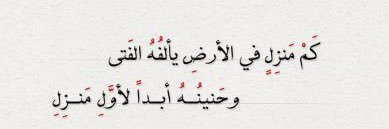 كَمْ مَنزِلٍ في الأرضِ يألفُهُ الفَتى
وحَنينُـــهُ أبــداً لأوَّلِ مَنــزِلِ